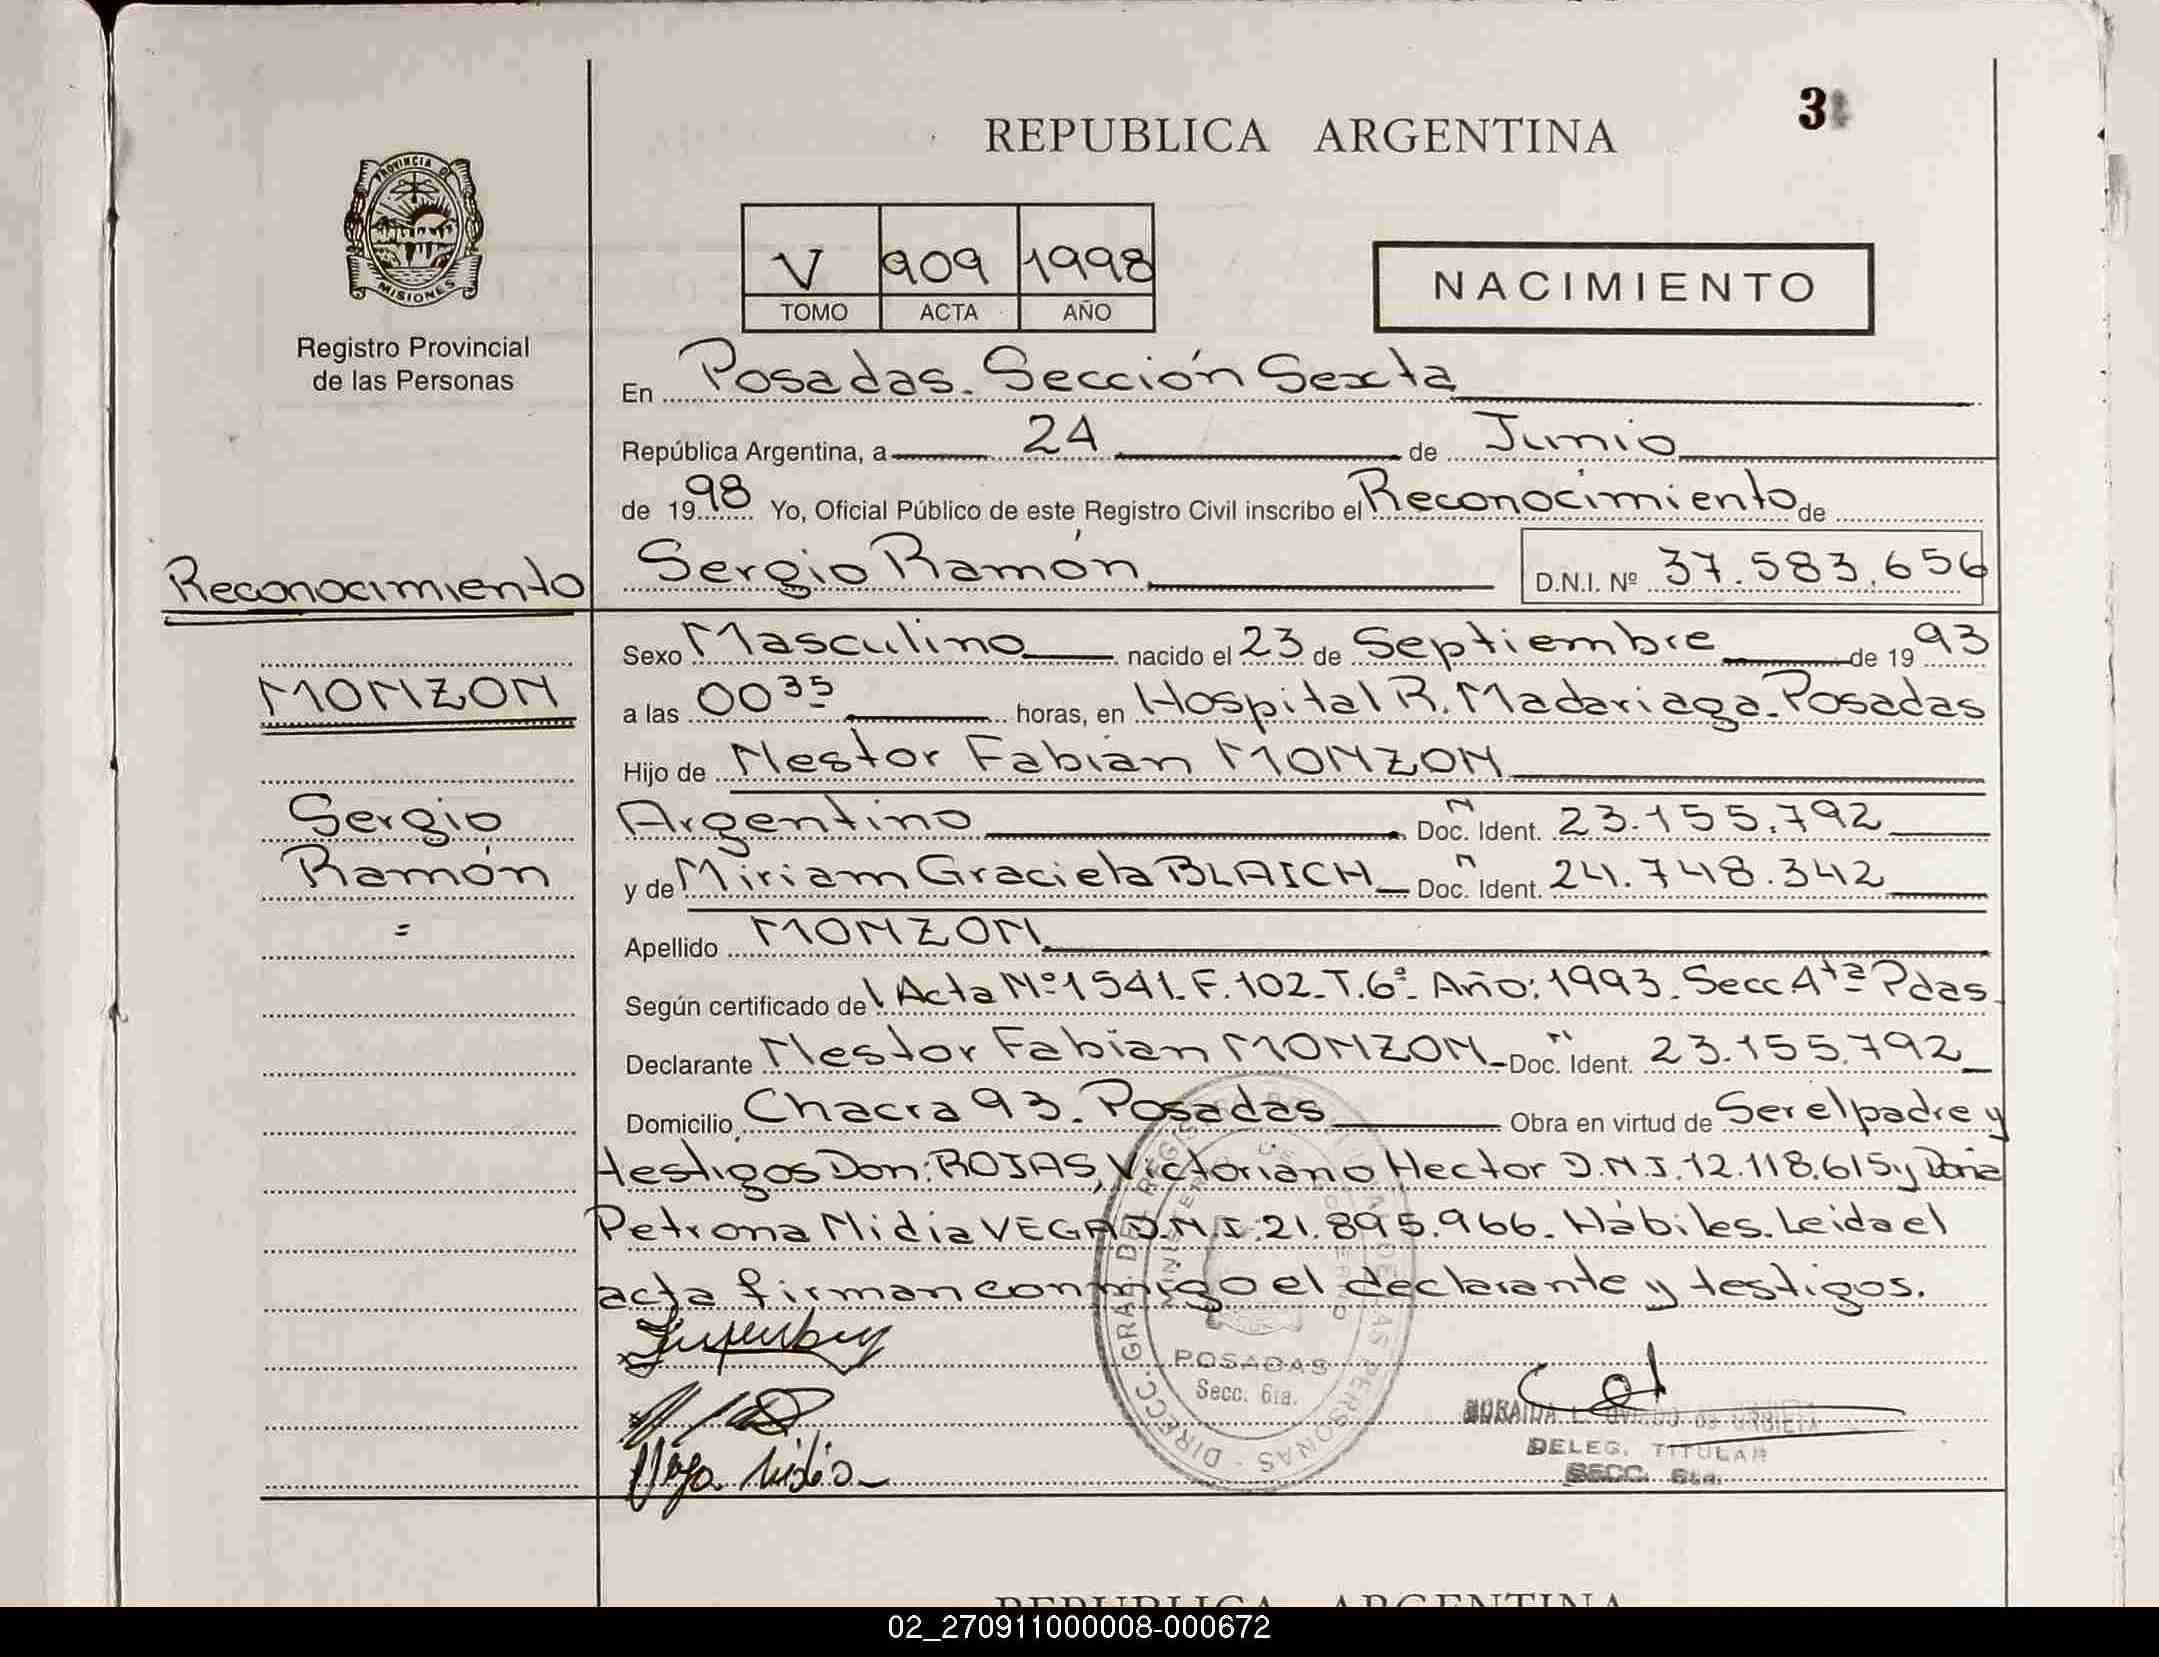 3
REPUBLICA ARGENTINA
PROVINCIA DE
MISIONES
Registro Provincial
de las Personas
V 909 1998
TOMO ACTA AÑO
NACIMIENTO
En Posadas. Sección Sexta
República Argentina, a 24 de Junio
de 1998 Yo, Oficial Público de este Registro Civil inscribo el Reconocimiento de
Sergio Ramón D.N.I. Nº 37.583.656
Reconocimiento
MONZON
Sergio
Ramón
=
Sexo Masculino nacido el 23 de Septiembre de 1993
a las 00 35 horas, en Hospital R. Madariaga. Posadas
Hijo de Nestor Fabian MONZON
Argentino Doc. N Ident. 23.155.792
y de Miriam Graciela BLAICH Doc. N Ident. 24.748.342
Apellido MONZON
Según certificado de l Acta Nº 1541. F. 102. T. 6º. Año: 1993. Secc 4ta Pdas.
Declarante Nestor Fabian MONZON Doc. N Ident. 23.155.792
Domicilio, Chacra 93. Posadas Obra en virtud de Ser el padre y
testigos Don: ROJAS, Victoriano Hector D.N.I. 12.118.615 y Doña
Petrona Nidia VEGA D.N.I: 21.895.966. Hábiles. Leida el
acta firman conmigo el declarante y testigos.
POSADAS
Secc. 6ta.
Vega Nidia
DELEG. TITULAR
SECC. 6ta.
REPUBLICA ARGENTINA
02_270911000008-000672